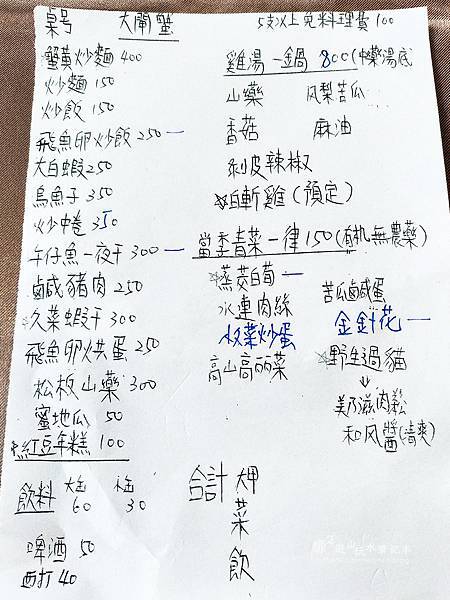 桌号 大閘蟹 5支以上免料理費100
蟹黃炒麵 400
炒麵 150
炒飯 150
飛魚卵炒飯 250 —
大白蝦 250
烏魚子 350
炒中卷 350
午仔魚一夜干 300 —
鹹豬肉 250
久菜蝦干 300
飛魚卵烘蛋 250
松板山藥 300
蜜地瓜 50
紅豆年糕 100
飲料 大 60 小 30
啤酒 50
西打 40
雞湯一鍋 800 (中藥湯底
山藥 鳳梨苦瓜
香菇 麻油
剝皮辣椒
白斬雞 (預定)
當季青菜一律150 (有机無農藥)
茭白荀 —
水連肉絲
水菜炒蛋
高山高丽菜
苦瓜鹹蛋
金針花 —
野生過貓
↓
美乃滋肉鬆
和风醬 (清爽)
合計
菜
飲